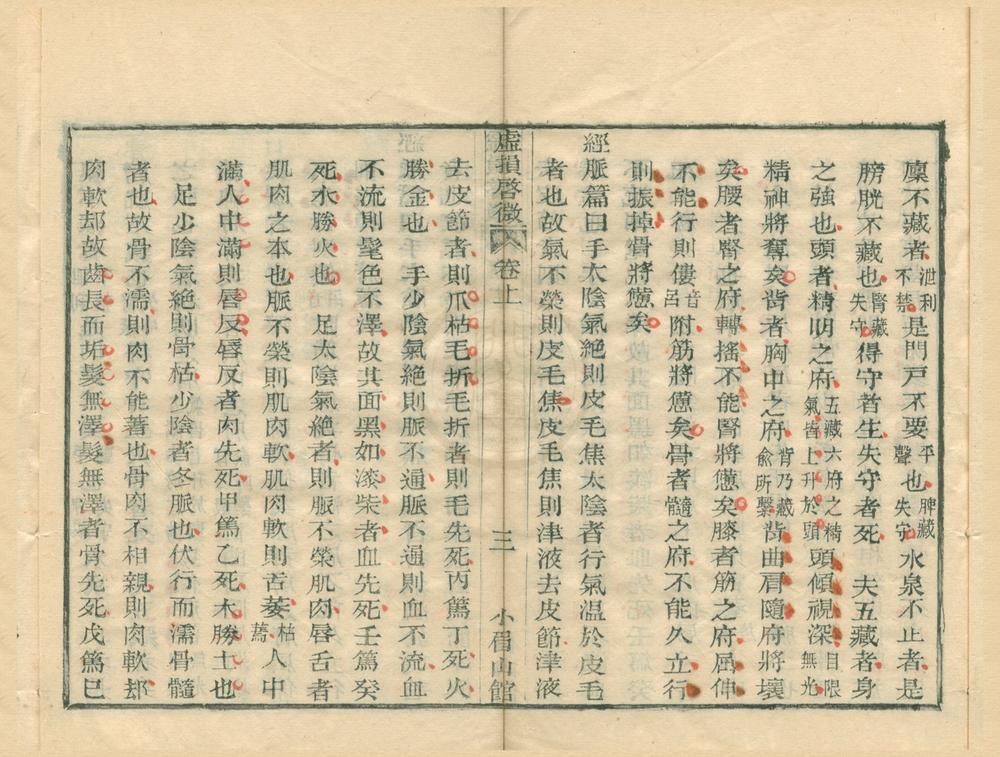 廩不藏者泄利不禁是門戸不要平聲也脾藏失守水泉不止者是
膀胱不藏也腎藏失守得守者生失守者死　夫五藏者身
之強也頭者精明之府五藏六府之精氣皆上升於頭頭傾視深目限無光
精神將奪矣背者胸中之府背乃藏俞所繫背曲肩隨府將壞
矣腰者腎之府轉搖不能腎將憊矣膝者筋之府屈伸
不能行則僂音呂附筋將憊矣骨者髓之府不能久立行
則振掉骨將憊矣
經脈篇曰手太陰氣絕則皮毛焦太陰者行氣溫於皮毛
者也故氣不榮則皮毛焦皮毛焦則津液去皮節津液
虛損啓微　卷上　三　小眉山館
去皮節者則爪枯毛折毛折者則毛先死丙篤丁死火
勝金也　手少陰氣絕則脈不通脈不通則血不流血
不流則髦色不澤故其面黑如漆柴者血先死壬篤癸
死水勝火也　足太陰氣絕者則脈不榮肌肉唇舌者
肌肉之本也脈不榮則肌肉軟肌肉軟則舌萎枯蔫人中
滿人中滿則唇反唇反者肉先死甲篤乙死木勝土也
足少陰氣絕則骨枯少陰者冬脈也伏行而濡骨髓
者也故骨不濡則肉不能著也骨肉不相親則肉軟却
肉軟却故齒長而垢髮無澤髮無澤者骨先死戊篤巳